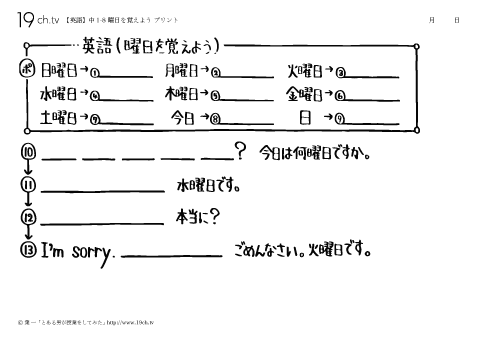 19 ch.tv 【英語】中1-8 曜日を覚えよう プリント 月 日
英語(曜日を覚えよう)
ポ 日曜日→① 月曜日→② 火曜日→③
水曜日→④ 木曜日→⑤ 金曜日→⑥
土曜日→⑦ 今日→⑧ 日→⑨
⑩ ? 今日は何曜日ですか。
⑪ 水曜日です。
⑫ 本当に?
⑬ I'm sorry. ごめんなさい。火曜日です。
© 葉一「とある男が授業をしてみた」http://www.19ch.tv